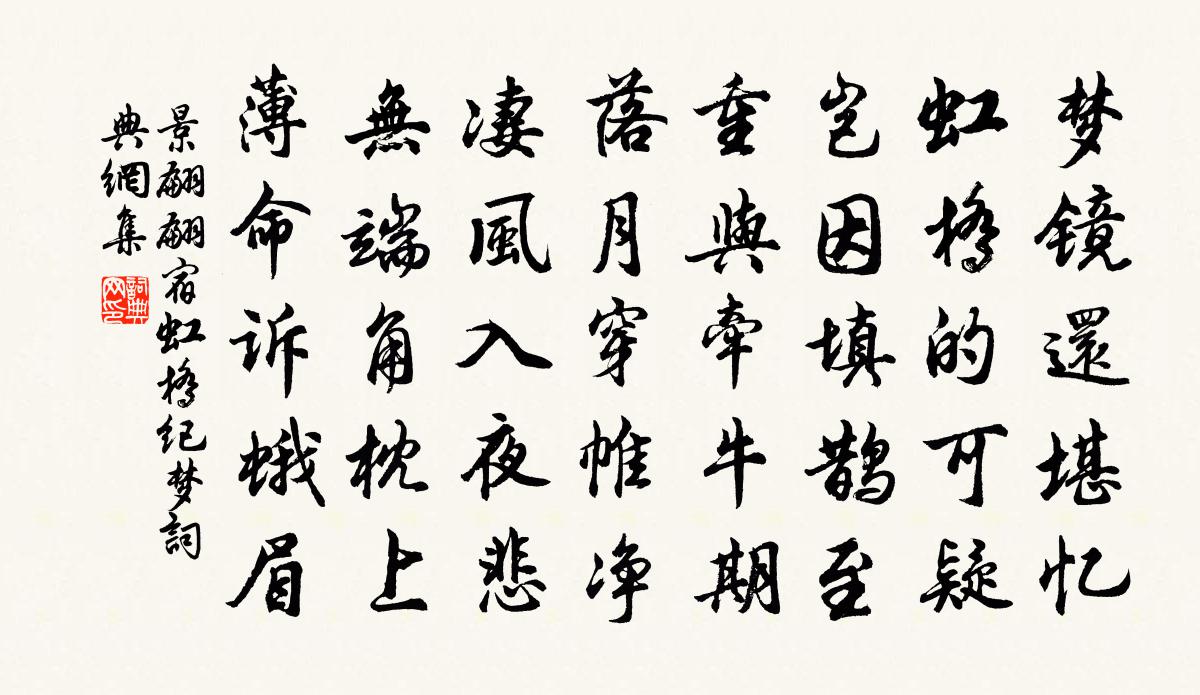 梦镜還堪忆
虹橋的可疑
岂因填鹊至
重與牽牛期
落月穿帷净
凄風入夜悲
無端角枕上
薄命诉蛾眉
景翩翩宿虹橋纪梦詞
典網集
詞典网印